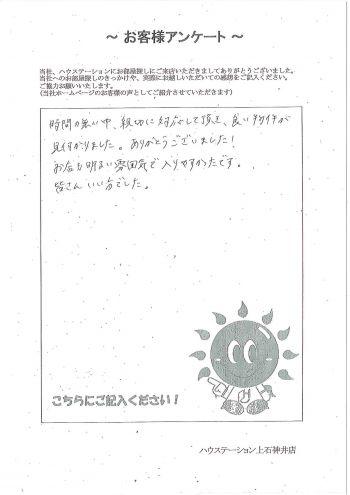 ～ お客様アンケート ～
当社、ハウステーションにお部屋探しにご来店いただきましてありがとうございました。
当社へのお部屋探しのきっかけや、実際にお越しいただいての感想をご記入ください。
ご協力お願いいたします。
(当社ホームページのお客様の声としてご紹介させていただきます)
時間の無い中、親切に対応して頂き、良い物件が
見付かりました。ありがとうございました！
お店も明るい雰囲気で入りやすかったです。
皆さんいい方でした。
こちらにご記入ください！
ハウステーション上石神井店